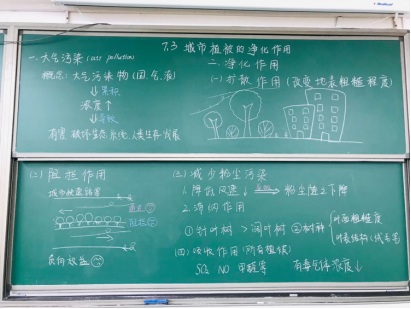 7.3 城市植被的净化作用
一.大气污染 (air pollution)
概念: 大气污染物 (固.气.液)
↓累积
浓度↑
↓导致
有害 破坏生态系统,人类生存/发展
二.净化作用
(一) 扩散作用 (改变地表粗糙程度)
(二) 阻拦作用
(三) 减少粉尘污染
1.降低风速↓ 粉尘随之下降
2.滞纳作用
① 针叶树 > 阔叶树 ②树种
叶面粗糙度
叶表结构
(四) 吸收作用 (所有植被)
SO₂ NO 甲醛等 有毒气体浓度↓